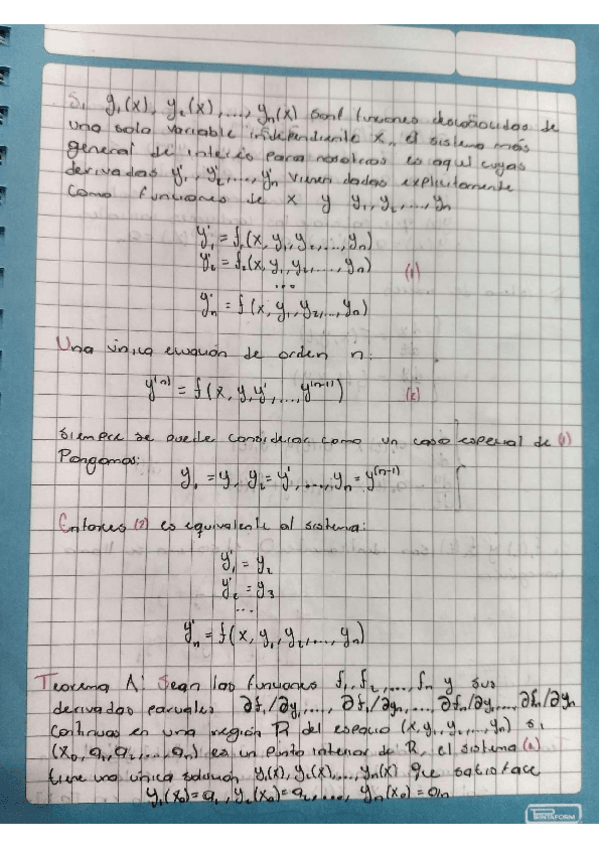 Si y₁(x), y₂(x),..., yₙ(x) son funciones desconocidas de
una sola variable independiente x, el sistema más
general de interés para nosotros es aquel cuyas
derivadas y'₁, y'₂,..., y'ₙ vienen dadas explicitamente
como funciones de x y y₁, y₂,..., yₙ
y'₁ = f₁(x, y₁, y₂,..., yₙ)
y'₂ = f₂(x, y₁, y₂,..., yₙ) (1)
...
y'ₙ = f(x, y₁, y₂,..., yₙ)
Una única ecuación de orden n:
y⁽ⁿ⁾ = f(x, y, y',..., y⁽ⁿ⁻¹⁾) (2)
siempre se puede considerar como un caso especial de (1)
Pongamos:
y₁ = y, y₂ = y',..., yₙ = y⁽ⁿ⁻¹⁾
Entonces (2) es equivalente al sistema:
y'₁ = y₂
y'₂ = y₃
...
y'ₙ = f(x, y₁, y₂,..., yₙ)
Teorema A: Sean las funciones f₁, f₂,..., fₙ y sus
derivadas parciales ∂f₁/∂y₁,..., ∂f₁/∂yₙ,..., ∂fₙ/∂y₁,..., ∂fₙ/∂yₙ
continuas en una región R del espacio (x, y₁, y₂,..., yₙ) si
(x₀, a₁, a₂,..., aₙ) es un punto interior de R, el sistema
tiene una única solución y₁(x), y₂(x),..., yₙ(x) que satisface
y₁(x₀) = a₁, y₂(x₀) = a₂,..., yₙ(x₀) = aₙ
PRINTAFORM